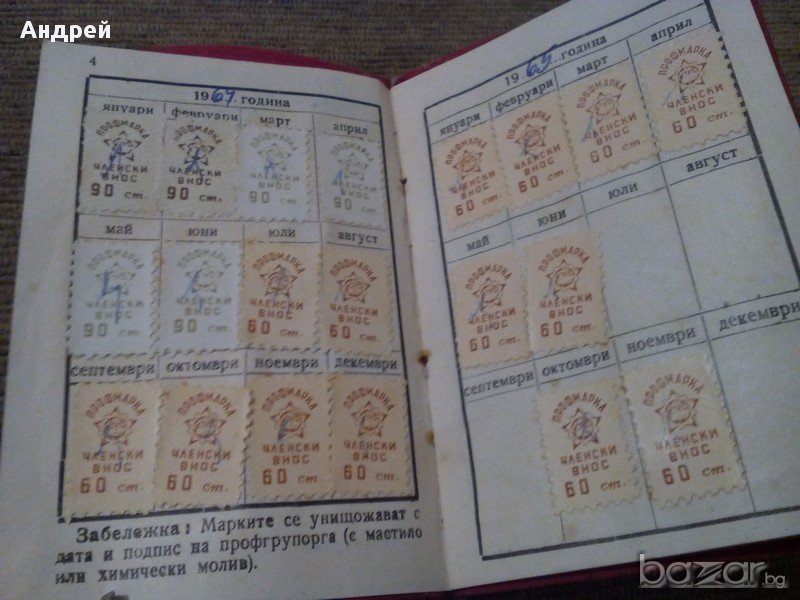 Андрей
4
1964 година
януари февруари март април
ПРОФМАРКА ПРОФМАРКА ПРОФМАРКА ПРОФМАРКА
ЧЛЕНСКИ ВНОС ЧЛЕНСКИ ВНОС ЧЛЕНСКИ ВНОС ЧЛЕНСКИ ВНОС
90 ст. 90 ст. 90 ст. 90 ст.
май юни юли август
ПРОФМАРКА ПРОФМАРКА ПРОФМАРКА ПРОФМАРКА
ЧЛЕНСКИ ВНОС ЧЛЕНСКИ ВНОС ЧЛЕНСКИ ВНОС ЧЛЕНСКИ ВНОС
90 ст. 90 ст. 60 ст. 60 ст.
септември октомври ноември декември
ПРОФМАРКА ПРОФМАРКА ПРОФМАРКА ПРОФМАРКА
ЧЛЕНСКИ ВНОС ЧЛЕНСКИ ВНОС ЧЛЕНСКИ ВНОС ЧЛЕНСКИ ВНОС
60 ст. 60 ст. 60 ст. 60 ст.
Забележка: Марките се унищожават с
дата и подпис на профгрупорга (с мастило
или химически молив).
1965 година
януари февруари март април
ПРОФМАРКА ПРОФМАРКА ПРОФМАРКА ПРОФМАРКА
ЧЛЕНСКИ ВНОС ЧЛЕНСКИ ВНОС ЧЛЕНСКИ ВНОС ЧЛЕНСКИ ВНОС
60 ст. 60 ст. 60 ст. 60 ст.
май юни юли август
ПРОФМАРКА ПРОФМАРКА
ЧЛЕНСКИ ВНОС ЧЛЕНСКИ ВНОС
60 ст. 60 ст.
септември октомври ноември декември
ПРОФМАРКА ПРОФМАРКА
ЧЛЕНСКИ ВНОС ЧЛЕНСКИ ВНОС
60 ст. 60 ст.
bazar.bg